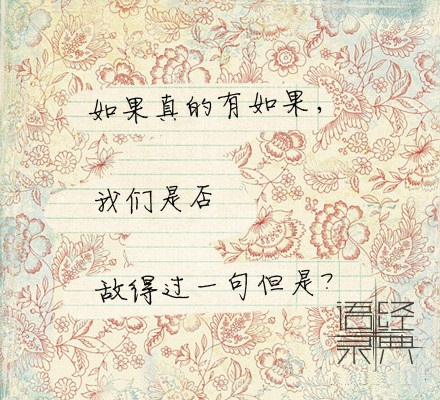 如果真的有如果，
我们是否
敌得过一句但是？
经典
语录